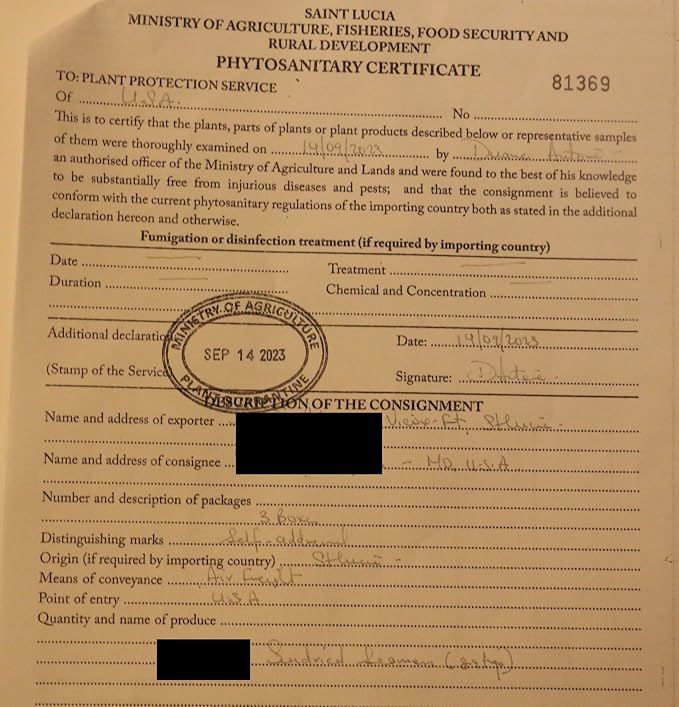 SAINT LUCIA
MINISTRY OF AGRICULTURE, FISHERIES, FOOD SECURITY AND
RURAL DEVELOPMENT
PHYTOSANITARY CERTIFICATE
81369
TO: PLANT PROTECTION SERVICE
Of U.S.A. No
This is to certify that the plants, parts of plants or plant products described below or representative samples
of them were thoroughly examined on 14/09/2023 by Duane
an authorised officer of the Ministry of Agriculture and Lands and were found to the best of his knowledge
to be substantially free from injurious diseases and pests; and that the consignment is believed to
conform with the current phytosanitary regulations of the importing country both as stated in the additional
declaration hereon and otherwise.
Fumigation or disinfection treatment (if required by importing country)
Date Treatment
Duration Chemical and Concentration
MINISTRY OF AGRICULTURE
SEP 14 2023
Additional declaration Date: 14/09/2023
(Stamp of the Service Signature:
DESCRIPTION OF THE CONSIGNMENT
Name and address of exporter
Name and address of consignee - MD, U.S.A
Number and description of packages
3 Boxes
Distinguishing marks
Origin (if required by importing country)
Means of conveyance Air
Point of entry U.S.A
Quantity and name of produce